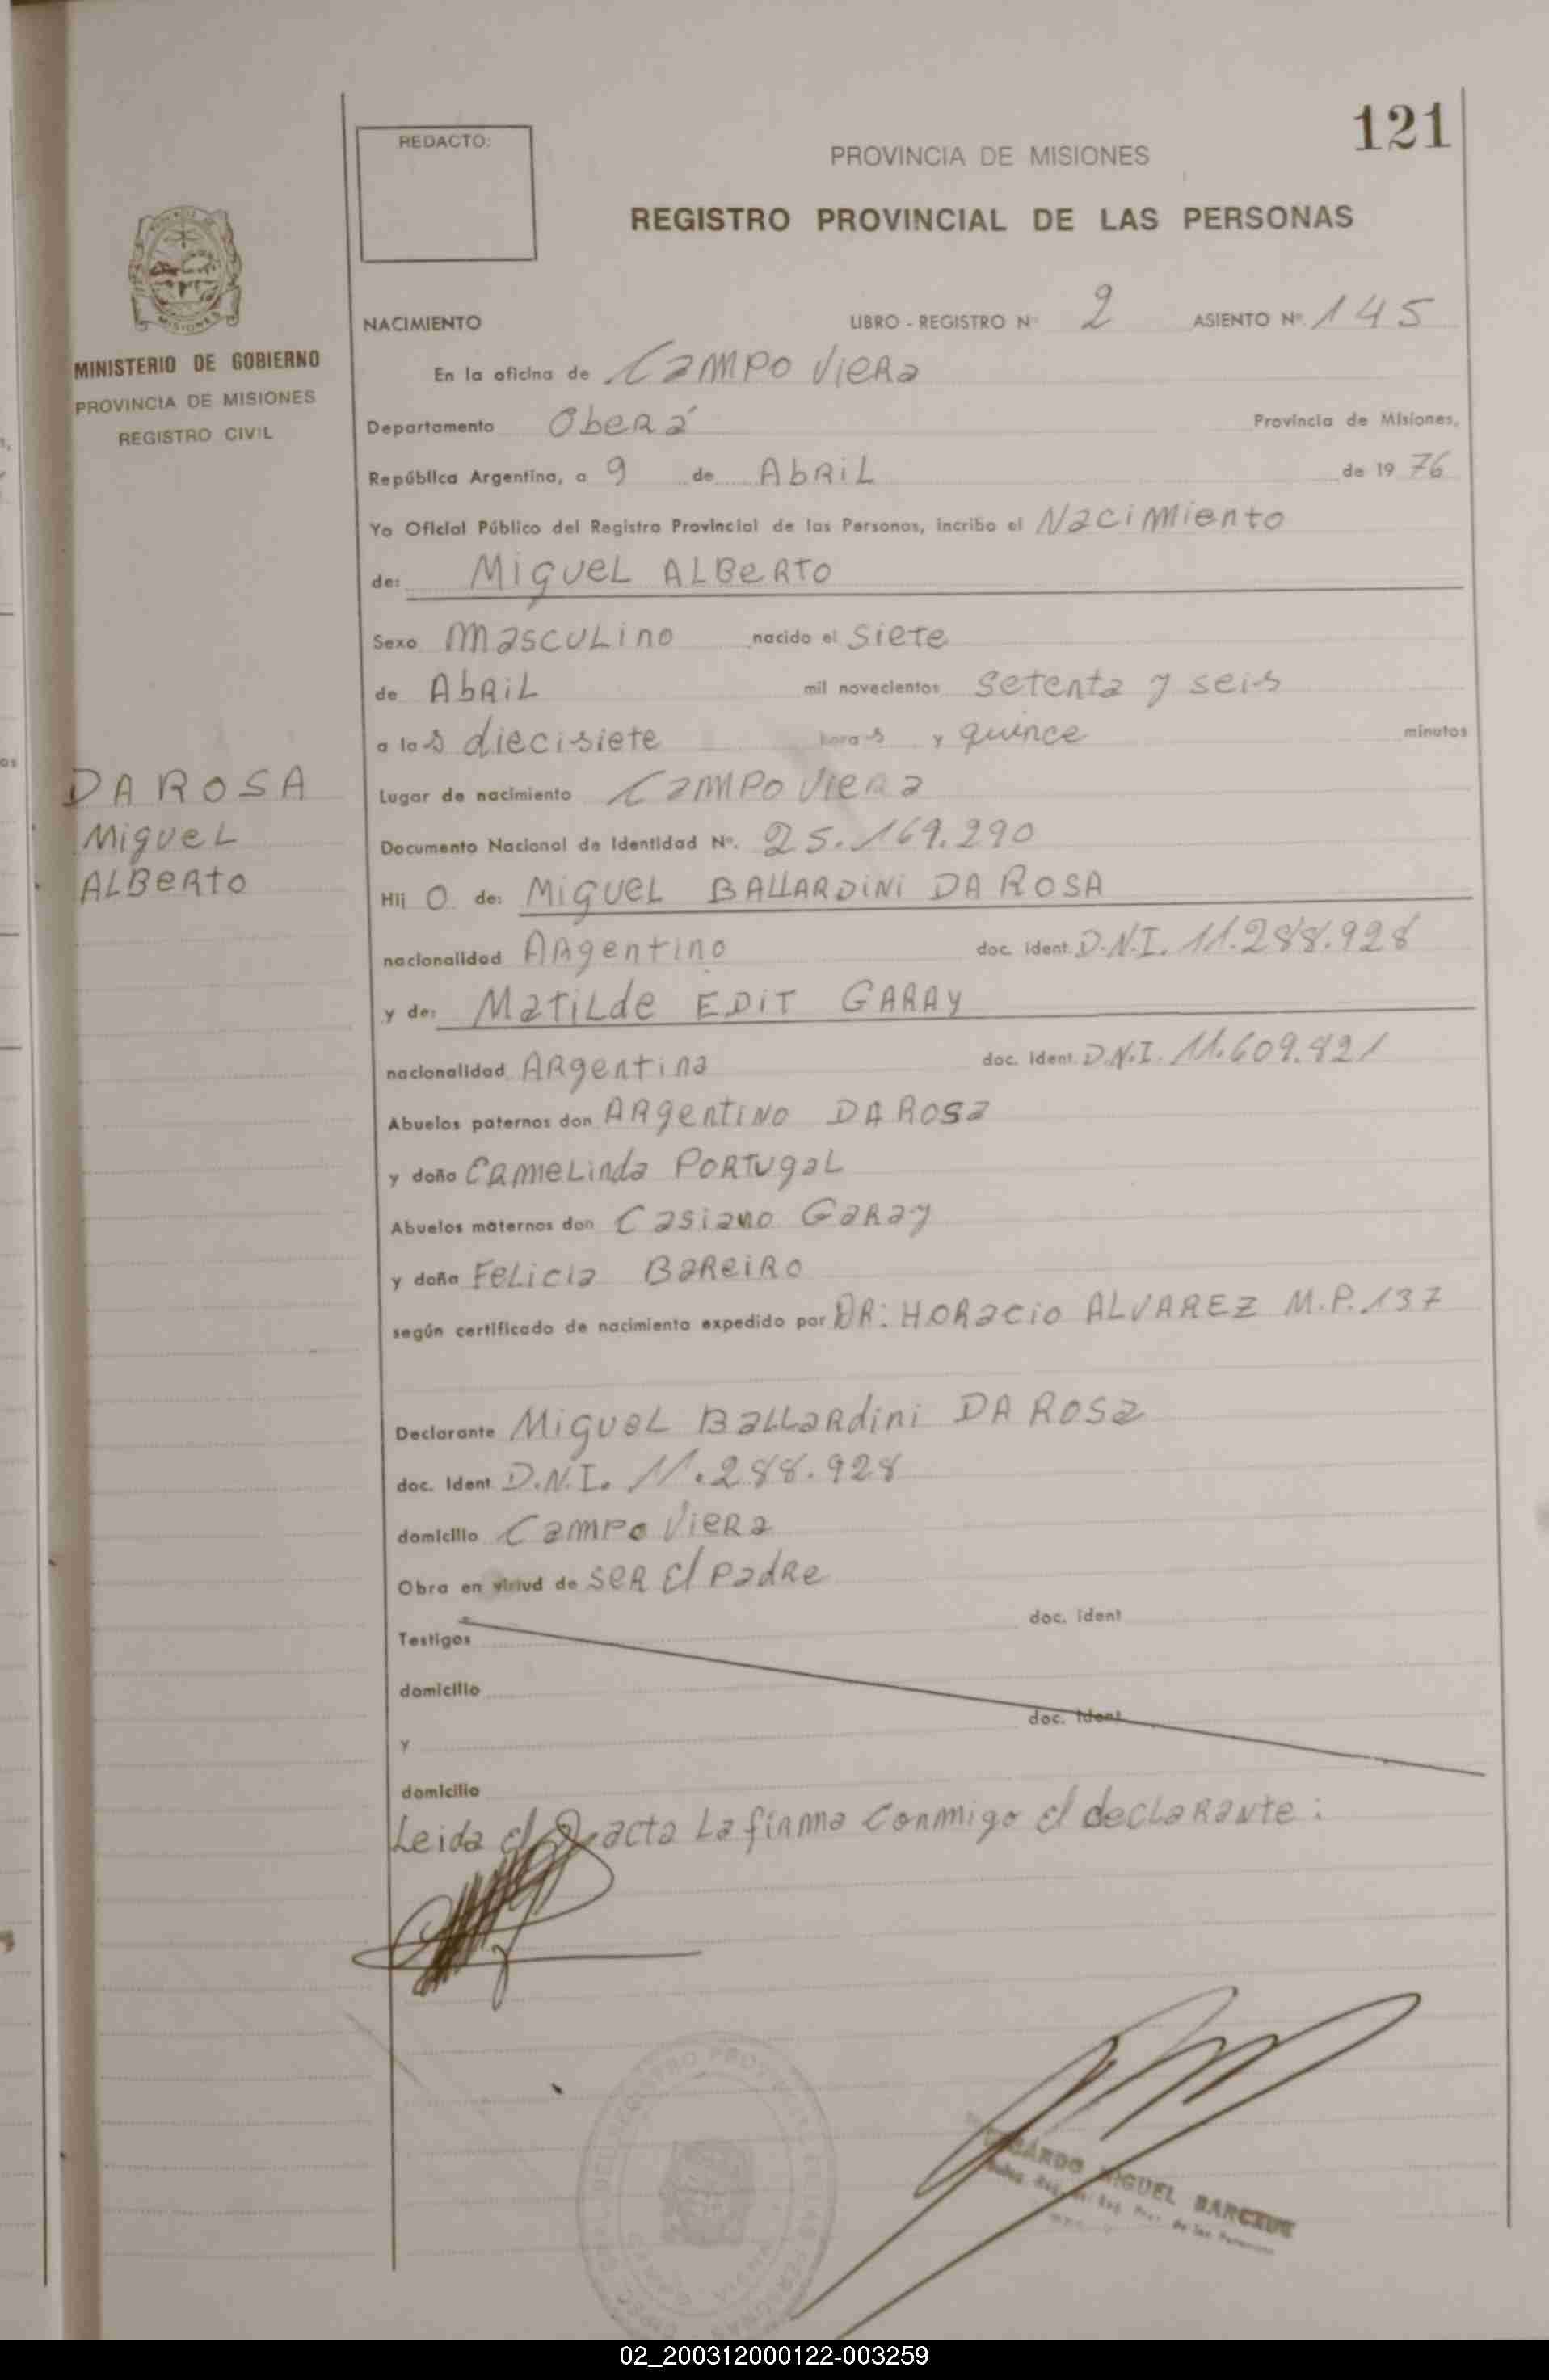 121
REDACTO:
PROVINCIA DE MISIONES
REGISTRO PROVINCIAL DE LAS PERSONAS
MISIONES
MINISTERIO DE GOBIERNO
PROVINCIA DE MISIONES
REGISTRO CIVIL
NACIMIENTO LIBRO - REGISTRO Nº 2 ASIENTO Nº 145
En la oficina de Campo Viera
Departamento Oberá Provincia de Misiones,
República Argentina, a 9 de Abril de 1976
Yo Oficial Público del Registro Provincial de las Personas, incribo el Nacimiento
de: Miguel ALBERTO
Sexo masculino nacido el siete
de Abril mil novecientos setenta y seis
a las diecisiete horas y quince minutos
DA ROSA
Miguel
ALBERTO
Lugar de nacimiento Campo Viera
Documento Nacional de Identidad Nº. 25.169.290
Hij o de: MIGUEL BALLARDINI DA ROSA
nacionalidad Argentino doc. ident. D.N.I. 11.288.928
y de: Matilde EDIT GARAY
nacionalidad Argentina doc. ident. D.N.I. 11.609.821
Abuelos paternos don Argentino DA Rosa
y doña Carmelinda Portugal
Abuelos maternos don Casiano Garay
y doña Felicia Bareiro
según certificado de nacimiento expedido por DR: Horacio ALVAREZ M.P. 137
Declarante Miguel Ballardini DA Rosa
doc. Ident D.N.I. 11.288.928
domicilio Campo Viera
Obra en virtud de ser el padre
doc. ident
Testigos
domicilio
doc. ident
y
domicilio
Leida el acta La firma conmigo el declarante:
MIGUEL
02_200312000122-003259